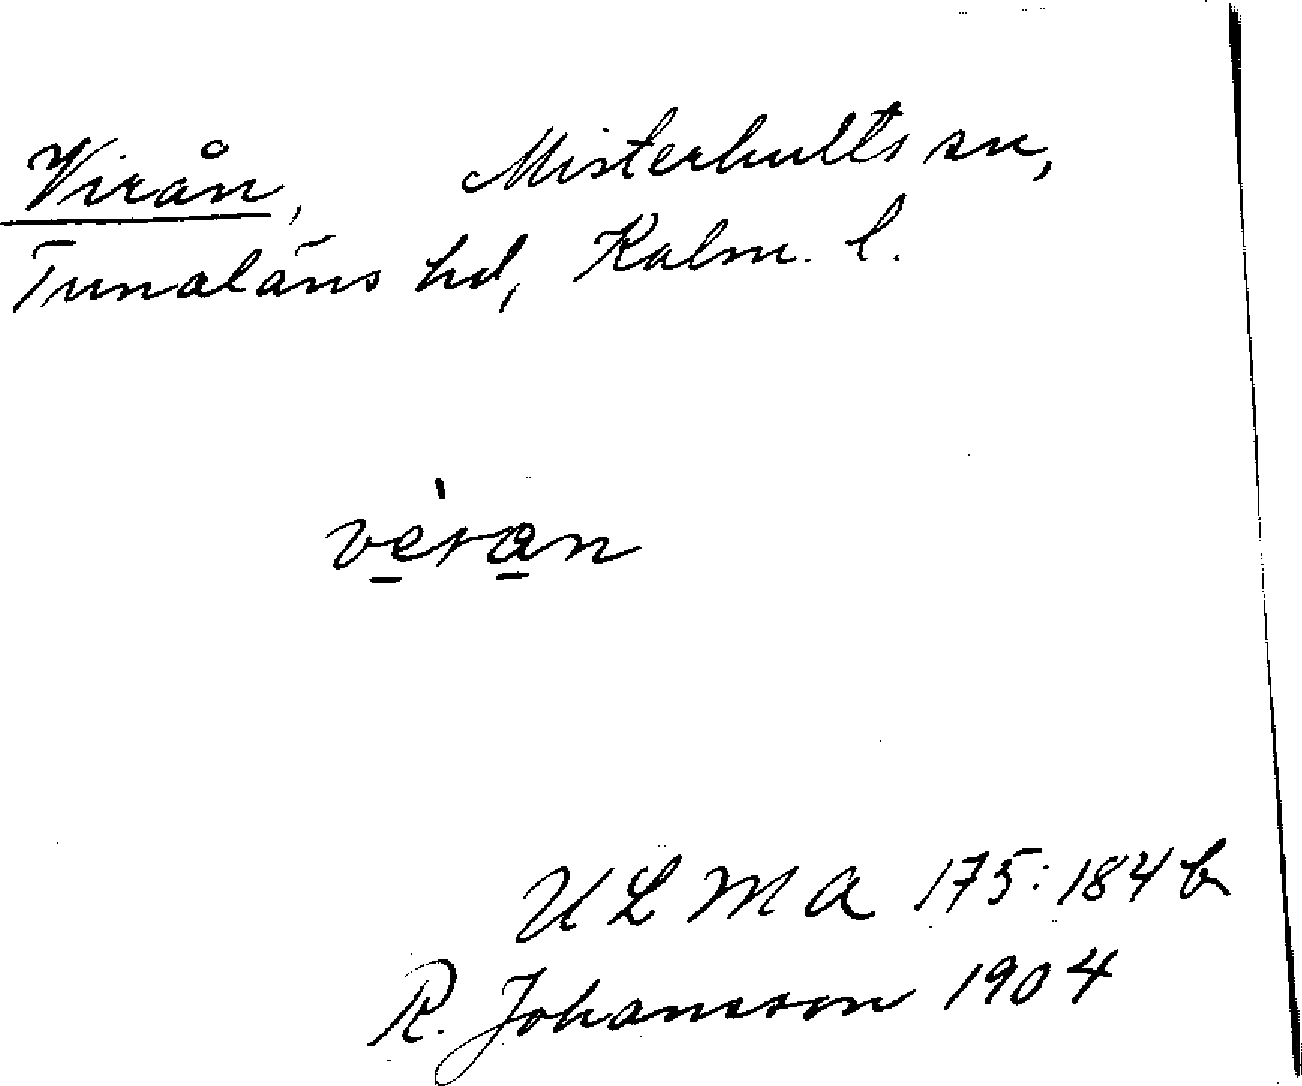 Virån, Misterhults sn,
Tunaläns hd, Kalm. l.
ve̠'ra̠n
ULMA 175:184b
R. Johansson 1904